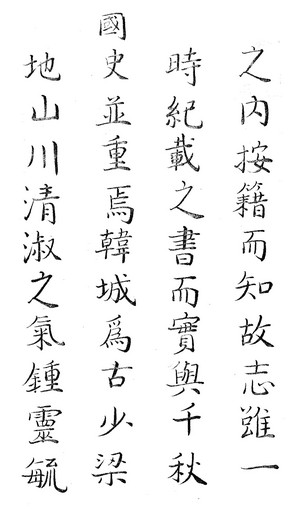 之内按籍而知故志雖一
時紀載之書而實與千秋
國史並重焉韓城爲古少梁
地山川清淑之氣鍾靈毓